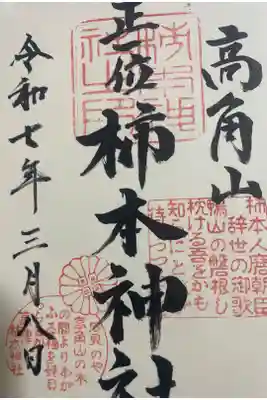 高角山
正一位 柿本神社
令和七年三月八日
柿本人磨朝臣
辞世の御歌
鴨山の磐根し
枕ける吾をかも
知にと
待つつ
石見のや
高角山の木
の間よりわが
ふる袖を妹